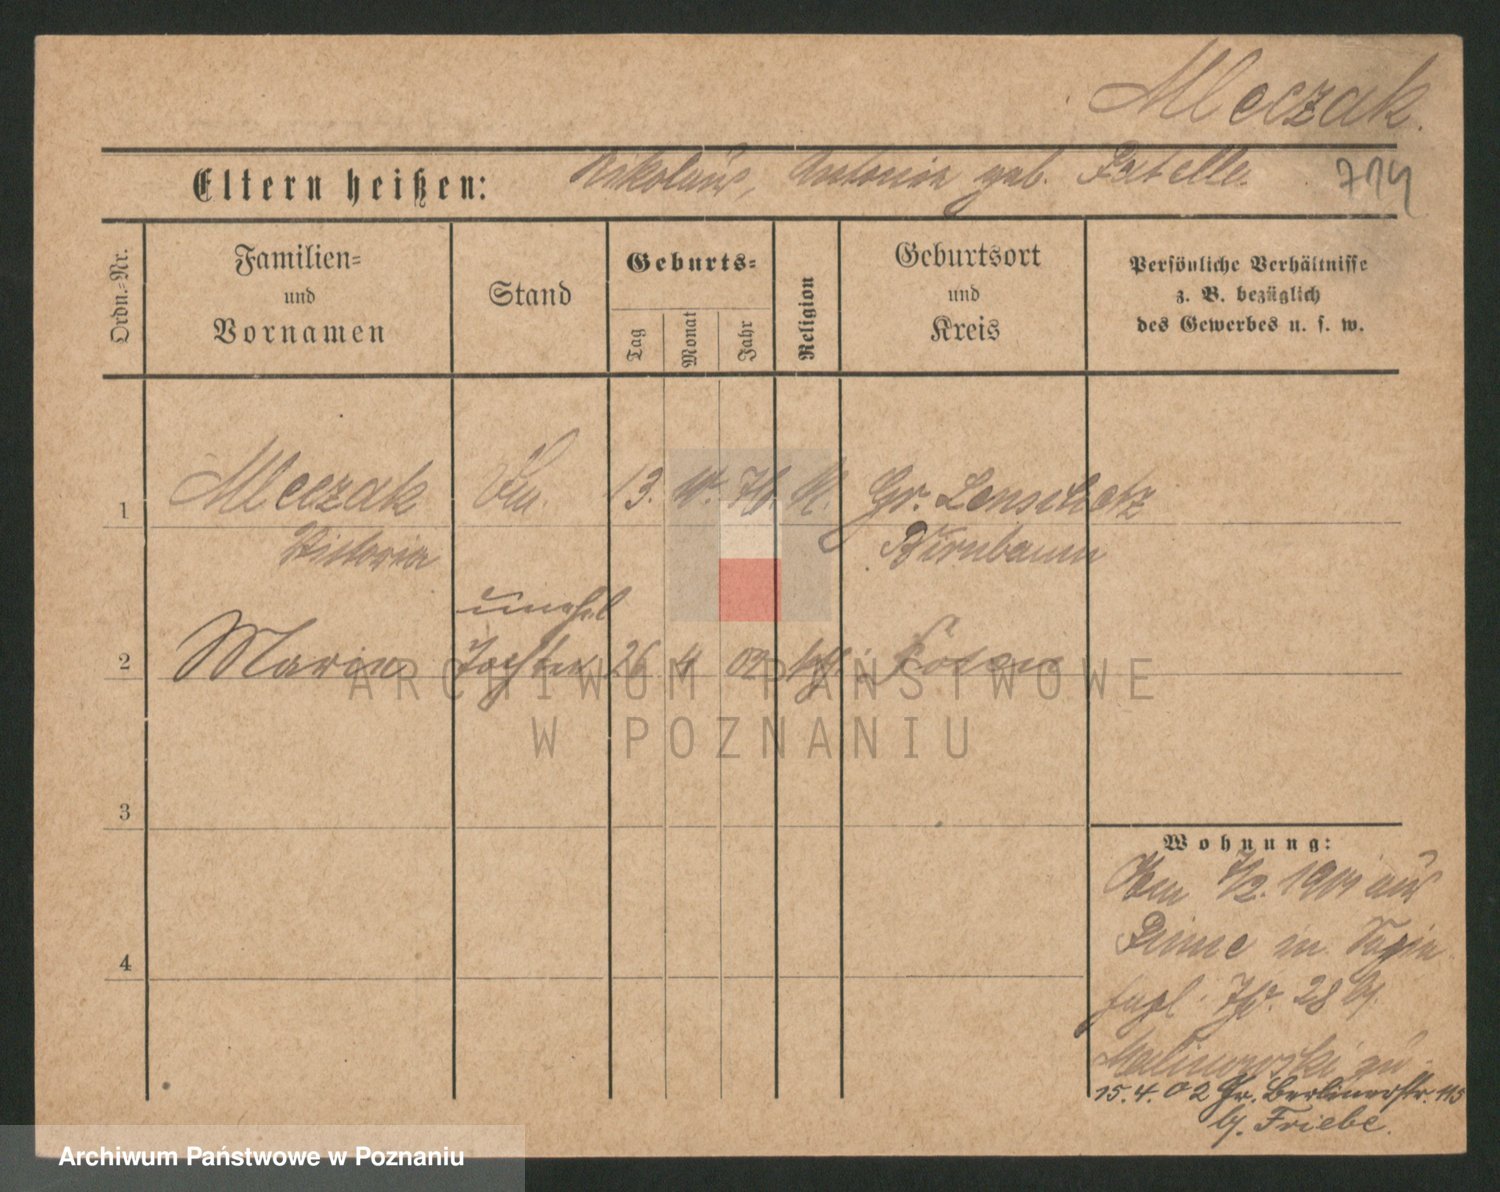 Mleczak.
Eltern heißen: Nikolaus, Antonie geb.
714
Ordn.-Nr.
Familien-
und
Vornamen
Stand
Geburts-
Tag
Monat
Jahr
Religion
Geburtsort
und
Kreis
Persönliche Verhältnisse
z. B. bezüglich
des Gewerbes u. s. w.
1
Mleczak
13.
Gr. Lenschetz
Victoria
Birnbaum
unehel
2
Maria
Tochter
26
4
02
kth.
Posen
3
4
Wohnung:
1901 aus
Pinne in
28
Malinowski
15.4.02 Gr. Berlinerstr. 115
b/. Friebe.
ARCHIWUM PAŃSTWOWE
W POZNANIU
Archiwum Państwowe w Poznaniu